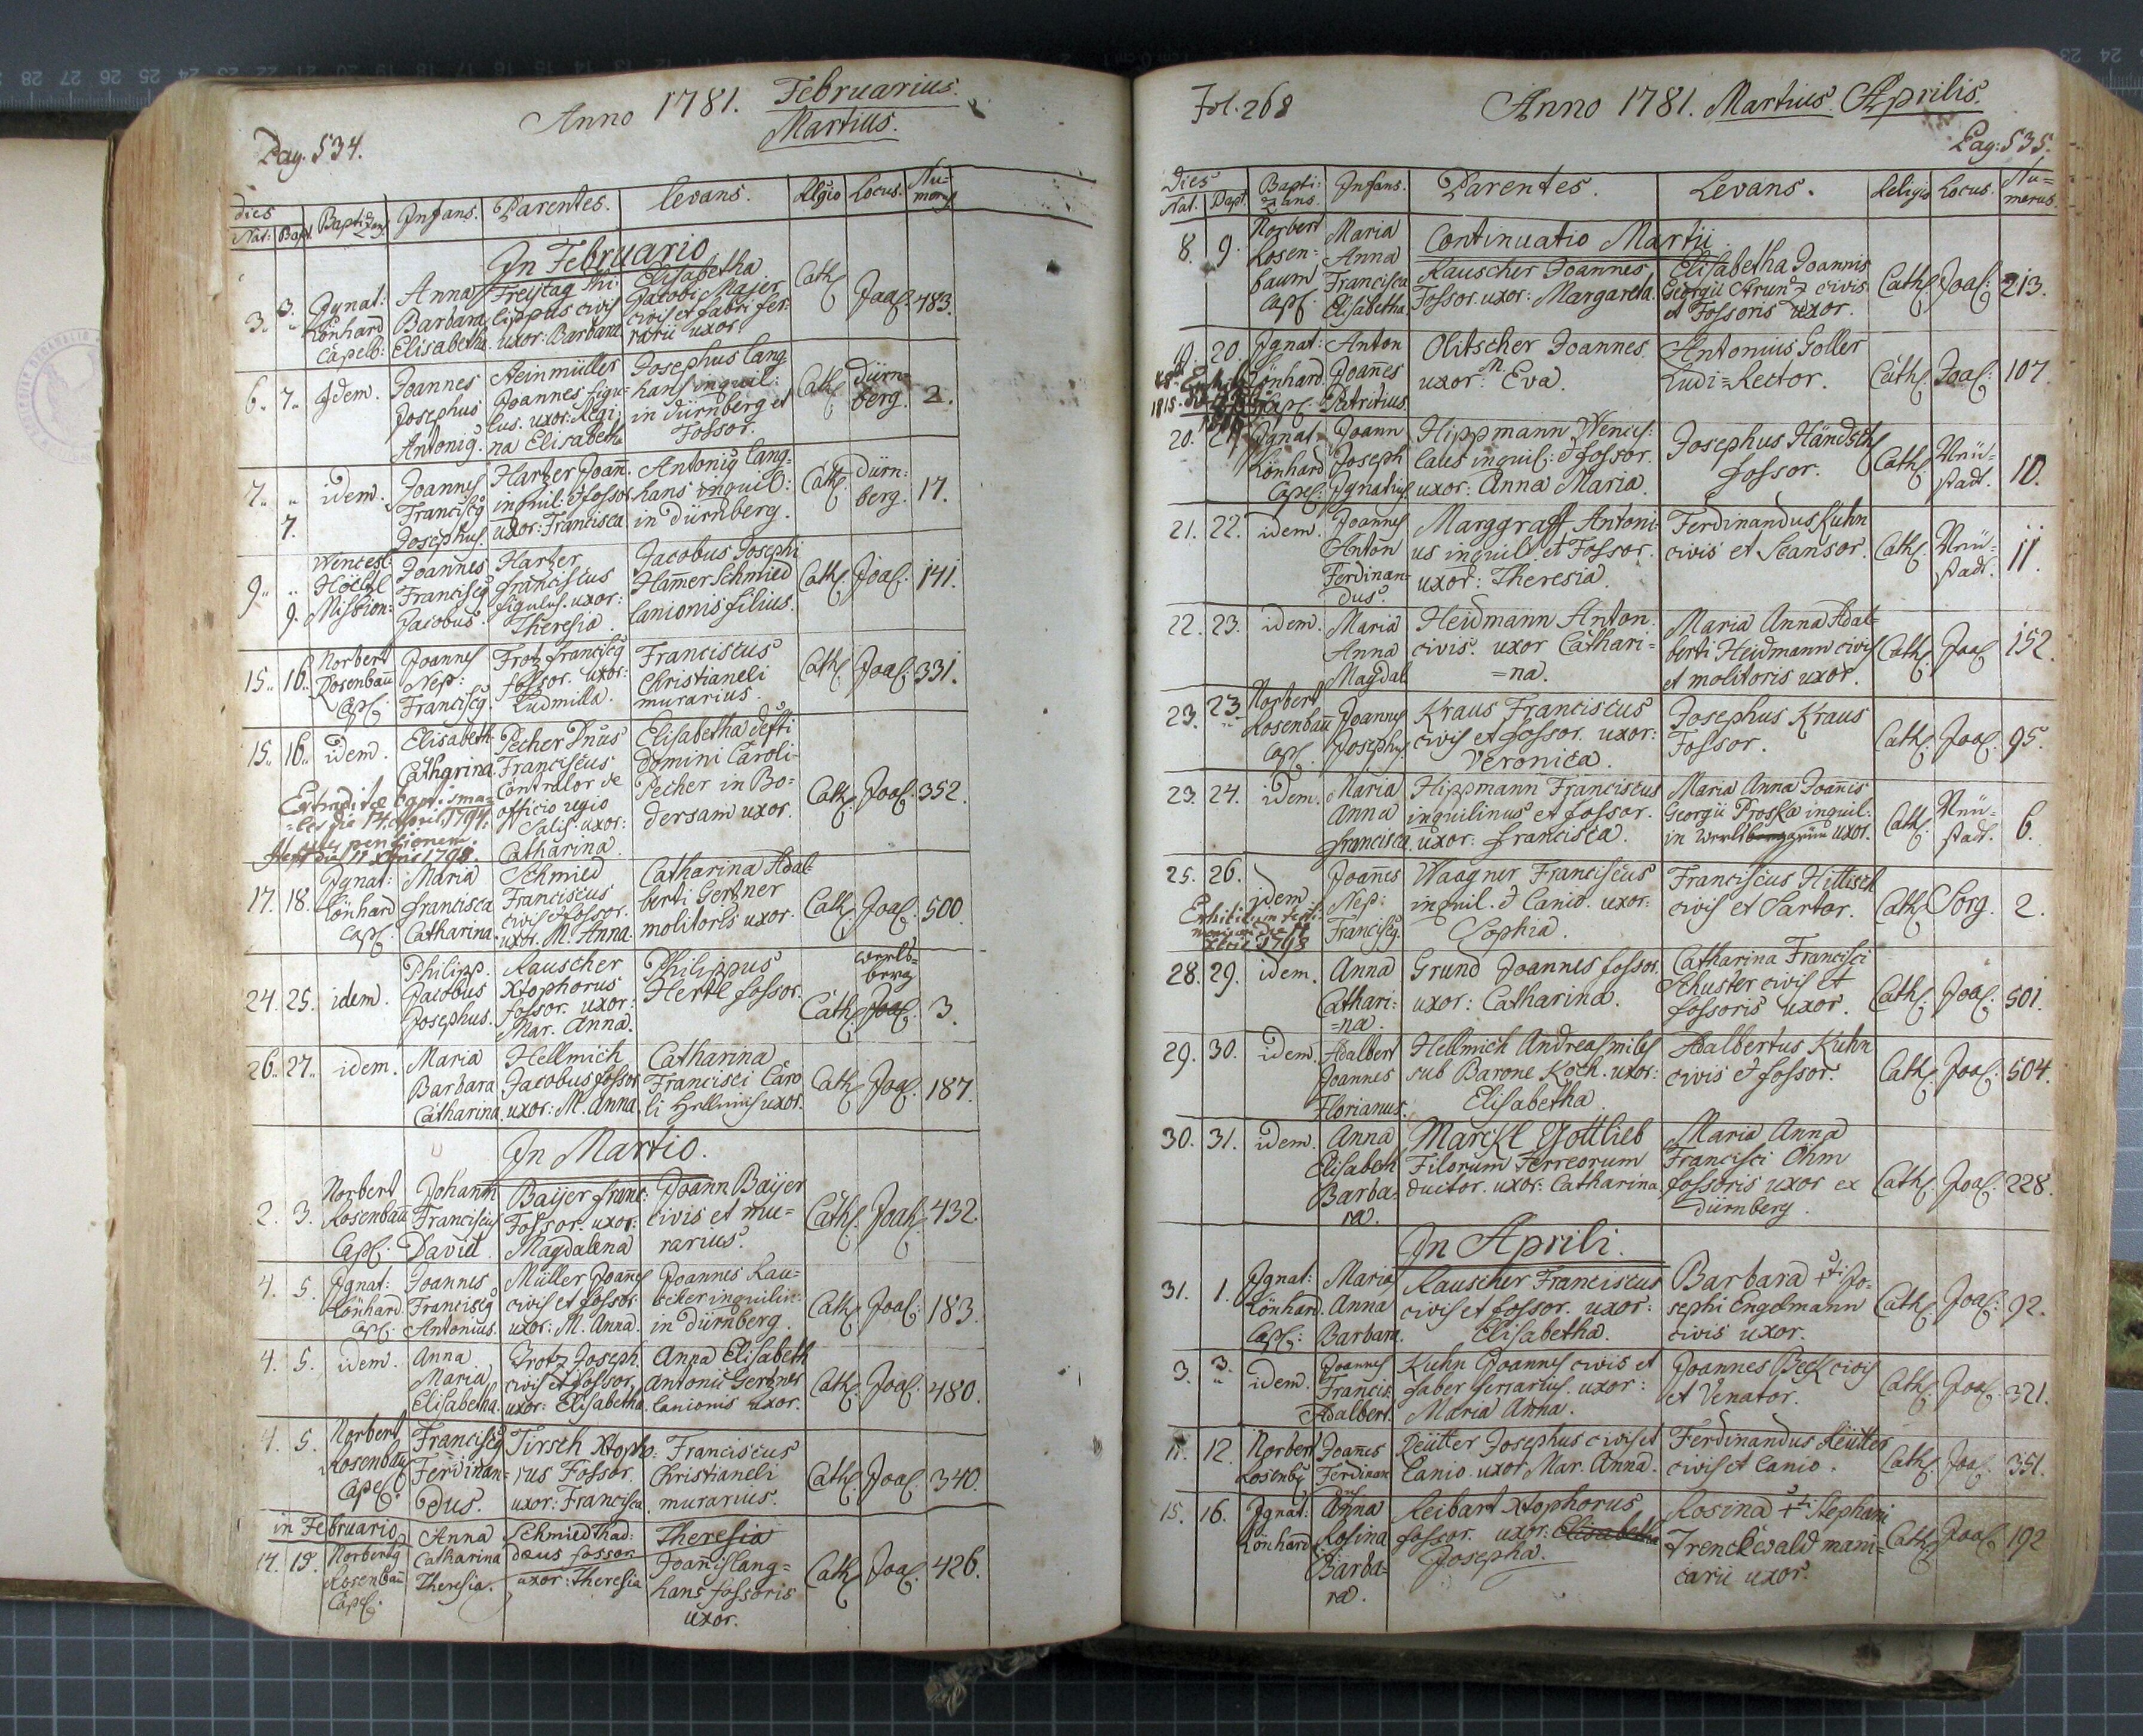 Anno 1781. Februarius.
Martius.
Pag. 534.
Dies
Nat: Bapt. Baptizans Infans. Parentes. Levans. Religio Locus. Nu=
merus
In Februario
3. 3. Ignat: Lönhard Capell: Anna Barbara Elisabetha. Freytag Phi
lippus civis uxor: Barbara Elisabetha Jacobi Majer civis et fabri fer:
rarii uxor. Cath. Joac. 483.
6. 7. Idem. Joannes Josephus Antoni9. Steinmüller Joannes figu=
lus. uxor: Regi:
na Elisabetha Josephus Lang
hans inquil:
in Dürnberg et
Fossor. Cath. Dürn=
berg. 2.
7. 7. idem. Joannes Francisc9 Josephus. Hartzer Joan̄.
inquil: & fossor
uxor: Francisca Antoni9 Lang=
hans inquil:
in Dürnberg. Cath. Dürn:
berg. 17.
9. 9. Wencesl
Höckl
Mission: Joannes
Francisc9
Jacobus. Harter
Franciscus
figulus. uxor:
Theresia. Jacobus Josephi
Hamerschmied
Lanionis filius. Cath. Joac. 141.
15. 16. Norbert
Rosenbau̅
Cap: Joannes
Nep:
Francisc9. Trotz Francisc9
fossor. uxor:
Ludmilla. Franciscus
Christianeli
murarius. Cath. Joac. 331.
15. 16. idem. Elisabeth
Catharina. Pecher Dnus
Franciscus
Contralor de
officio regio
Salis. uxor:
Catharina. Elisabetha defti
Domini Caroli
Pecher in Bo=
dersam uxor. Cath. Joac. 352.
Extraditæ bapt:isma=
les die 14. April 1794.
17. 18. Ignat:
Lönhard
Cap: Maria
Francisca
Catharina. Schmied
Franciscus
civis et fossor.
uxor. M. Anna. Catharina Adal
berti Gertner
molitoris uxor. Cath. Joac. 500.
24. 25. idem. Philipp.
Jacobus
Josephus. Rauscher
Xtophorus
fossor. uxor:
Mar. Anna. Philippus
Hertl fossor. Cath. Werls=
berg
Joac. 3.
26. 27. idem. Maria
Barbara
Catharina. Hellmich
Jacobus fossor
uxor: M. Anna. Catharina
Francisci Caro
li Hellmig uxor. Cath. Joac. 187.
In Martio.
2. 3. Norbert
Rosenbau̅
Cap: Johann
Franciscus
David. Baijer Franc:
Fossor. uxor:
Magdalena Joann Baijer
civis et mu=
rarius. Cath. Joach. 432.
4. 5. Ignat:
Lönhard.
Cap: Joannes
Francisc9
Antonius. Müller Joan̄es
civis et fossor
uxor: M. Anna. Joannes Rau=
scher inquilin:
in Dürnberg. Cath. Joac. 183.
4. 5. idem. Anna
Maria
Elisabetha. Trotz Joseph
civis et fossor,
uxor: Elisabetha. Anna Elisabeth
Antonii Gertner
Lanionis uxor. Cath. Joac. 480.
4. 5. Norbert
Rosenbau̅
Cap: Francisc9
Ferdinan=
dus. Tirsch Xtoph:
rus Fossor.
uxor: Francisca. Franciscus
Christianeli
murarius. Cath. Joac. 340.
in Februario
17. 19. Norbert9
Rosenbau̅
Cap: Anna
Catharina
Theresia. Schmied Thad:
dæus fossor
uxor: Theresia Theresia
Joan̄is Lang=
hans fossoris
uxor. Cath. Joac. 426.
Fol. 268
Anno 1781. Martius. Aprilis.
Pag: 535.
Dies
Nat. Bapt. Bapti:
zans. Infans. Parentes. Levans. Religio Locus. Nu=
merus.
Continuatio Martii.
8. 9. Norbert
Rosen=
baum
Cap: Maria
Anna
Francisca
Elisabetha. Rauscher Joannes
Fossor. uxor: Margareta. Elisabetha Joannis
Georgii Grund civis
et Fossoris uxor. Cath. Joac. 213.
19. 20. Ignat:
Lönhard.
Cap: Anton
Joan̄es
Patritius. Olitscher Joannes
uxor: Eva. Antonius Goller
Ludi=Rector. Cath. Joac. 107.
1815.
20. 21. Ignat
Lönhard
Cap: Joann
Joseph
Ignatius. Hippmann Wences:
laus inquil: & fossor.
uxor: Anna Maria. Josephus Händsch
fossor. Cath. Neü=
stadt. 10.
21. 22. idem. Joannes
Anton
Ferdinan=
dus. Marggraff Antoni
us inquil: et Fossor.
uxor: Theresia. Ferdinandus Kuhn
civis et Scansor. Cath. Neü=
stadt. 11.
22. 23. idem. Maria
Anna
Magdal Heidmann Anton.
civis. uxor Cathari=
=na. Maria Anna Adal=
berti Heidmann civis
et molitoris uxor. Cath. Joac. 152.
23. 23. Norbert
Rosenbau̅
Cap. Joannes
Josephus. Kraus Franciscus
civis et fossor. uxor:
Veronica. Josephus Kraus
Fossor. Cath. Joac. 95.
23. 24. idem. Maria
Anna
Francisca. Hippmann Franciscus
inquilinus et fossor.
uxor: Francisca. Maria Anna Joan̄is
Georgii Proska inquil:
in Werls uxor. Cath. Neü=
stadt. 6.
25. 26. idem Joan̄es
Nep:
Francisc9. Waagner Franciscus
inquil. & Lanio. uxor:
Sophia. Franciscus Hittisch
civis et Sartor. Cath. Sorg. 2.
1798
28. 29. idem. Anna
Cathari=
=na. Grund Joannes fossor.
uxor: Catharina. Catharina Francisci
Schuster civis et
fossoris uxor. Cath. Joac. 501.
29. 30. idem. Adalbert
Joannes
Florianus. Hellmich Andreas miles
sub Barone Koch. uxor:
Elisabetha Adalbertus Kuhn
civis & fossor. Cath. Joac. 504.
30. 31. idem. Anna
Elisabeth
Barba=
ra. Marckl Gottlieb
Filorum Ferreorum
ductor. uxor: Catharina Maria Anna
Francisci Öhm
fossoris uxor ex
Dürnberg. Cath. Joac. 228.
In Aprili.
31. 1. Ignat:
Lönhard.
Cap: Maria
Anna
Barbara. Rauscher Franciscus
civis et fossor. uxor:
Elisabetha. Barbara Jo=
sephi Engelmann
civis uxor. Cath. Joac. 92.
3. 3. idem. Joannes
Francis.
Adalbert. Kuhn Joannes civis et
faber serrarius. uxor:
Maria Anna. Joannes Peck civis
et Venator. Cath. Joac. 321.
11. 12. Norbert
Rosenb9 Joan̄es
Ferdinan
dus Reütter Josephus civis et
Lanio. uxor Mar. Anna. Ferdinandus Reütter
civis et Lanio. Cath. Joac. 351.
15. 16. Ignat:
Lönhard Anna
Rosina
Barba=
ra. Reibart Xtophorus
fossor. uxor: Elisabetha
Josepha. Rosina Stephani
Trenckwald mani=
carii uxor. Cath. Joac. 192